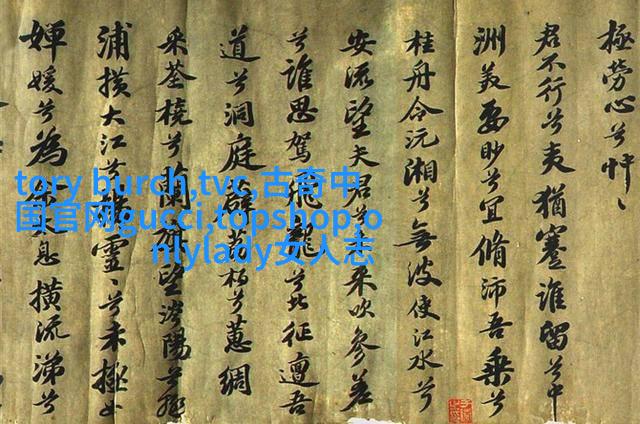 極勞心兮忡〻
君不行兮夷猶蹇誰留兮中
洲美要眇兮宜脩沛吾乘兮
桂舟令沅湘兮無波使江水兮
安流望夫君兮未來吹參差
兮誰思駕飛龍兮北征邅吾
道兮洞庭薜荔柏兮蕙綢
采荃橈兮蘭旌望涔陽兮極
浦橫大江兮靈〻兮未極女
嬋媛兮為息橫流涕兮
tory burch,tvc,古奇中
国官网gucci,topshop,o
nlylady女人志